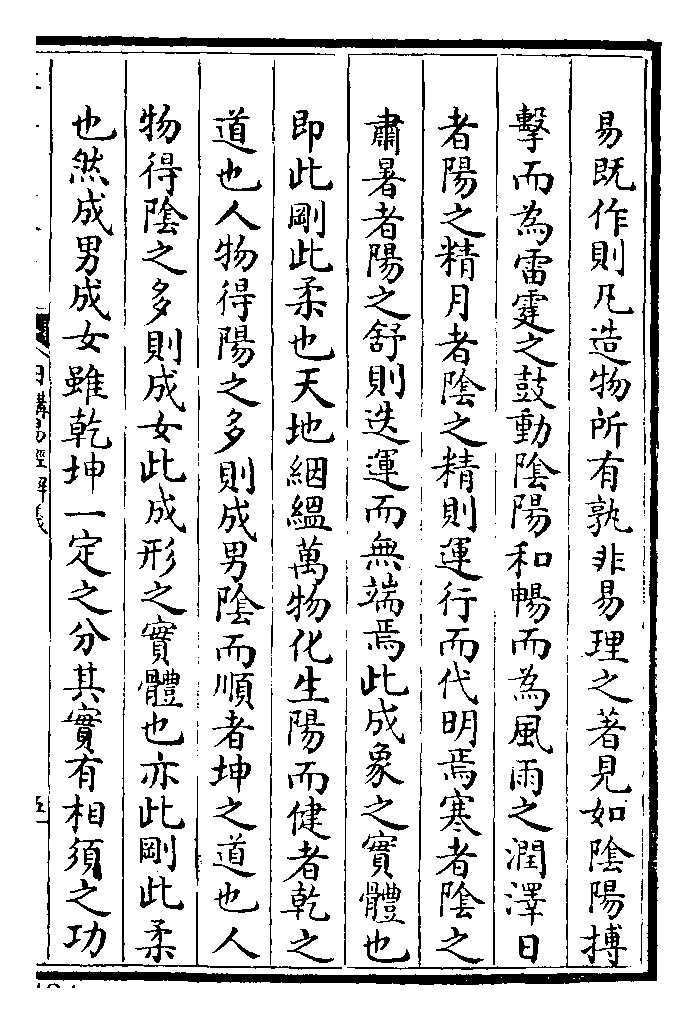 易既作則凡造物所有孰非易理之著見如陰陽搏
擊而為雷霆之鼓動陰陽和暢而為風雨之潤澤日
者陽之精月者陰之精則運行而代明焉寒者陰之
肅暑者陽之舒則迭運而無端焉此成象之實體也
即此剛此柔也天地絪緼萬物化生陽而健者乾之
道也人物得陽之多則成男陰而順者坤之道也人
物得陰之多則成女此成形之實體也亦此剛此柔
也然成男成女雖乾坤一定之分其實有相須之功
日講易經解義